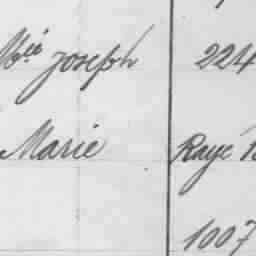 Mie Joseph 224
Marie Rayé
1007